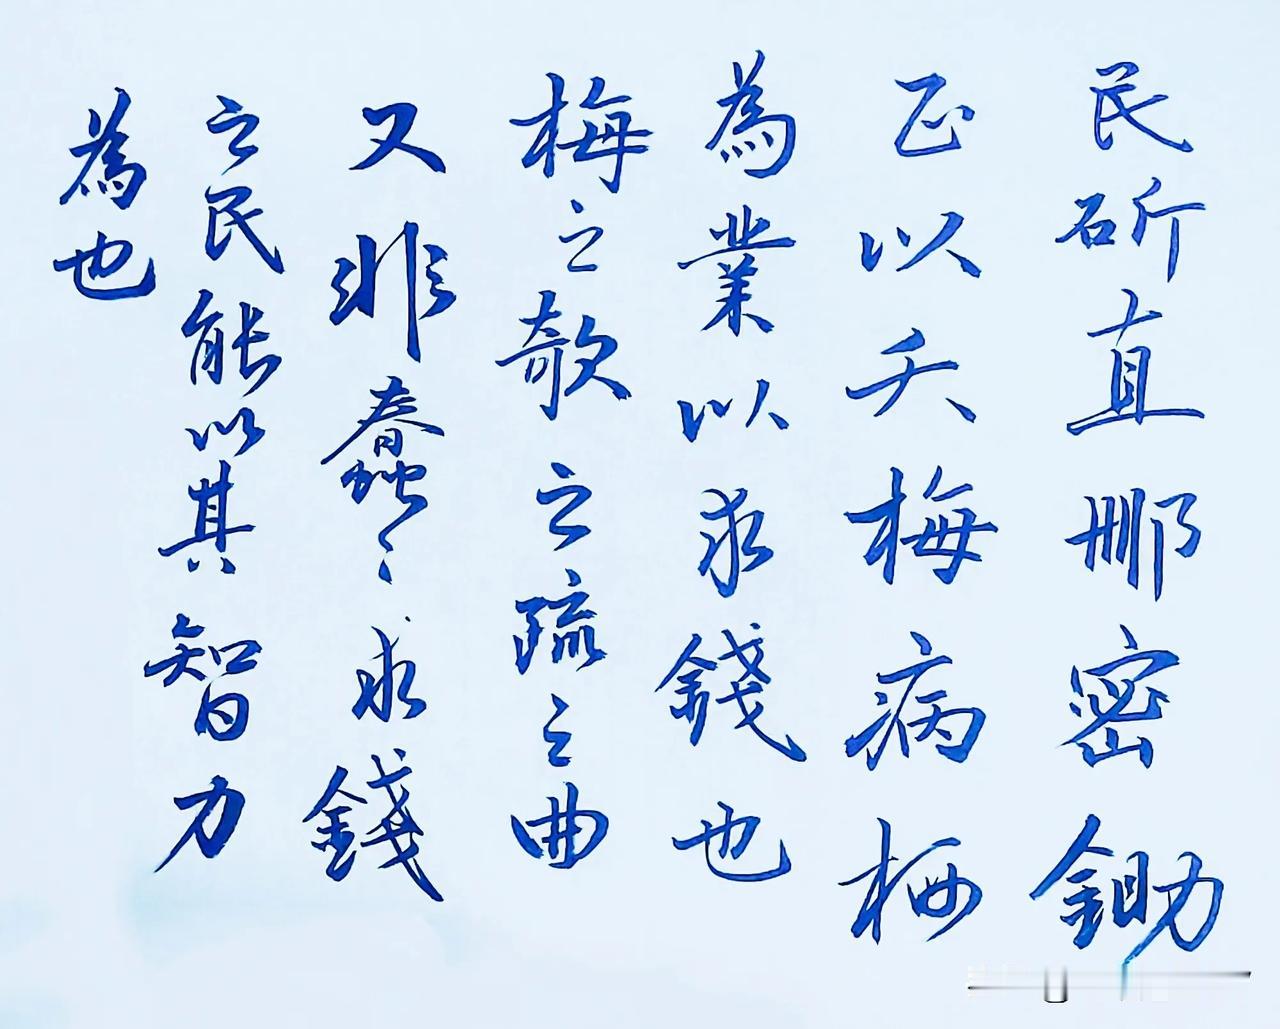 民斫直刪密鋤
正以夭梅病梅
為業以求錢也
梅之欹之疏之曲
又非蠢〻求錢
之民能以其智力
為也